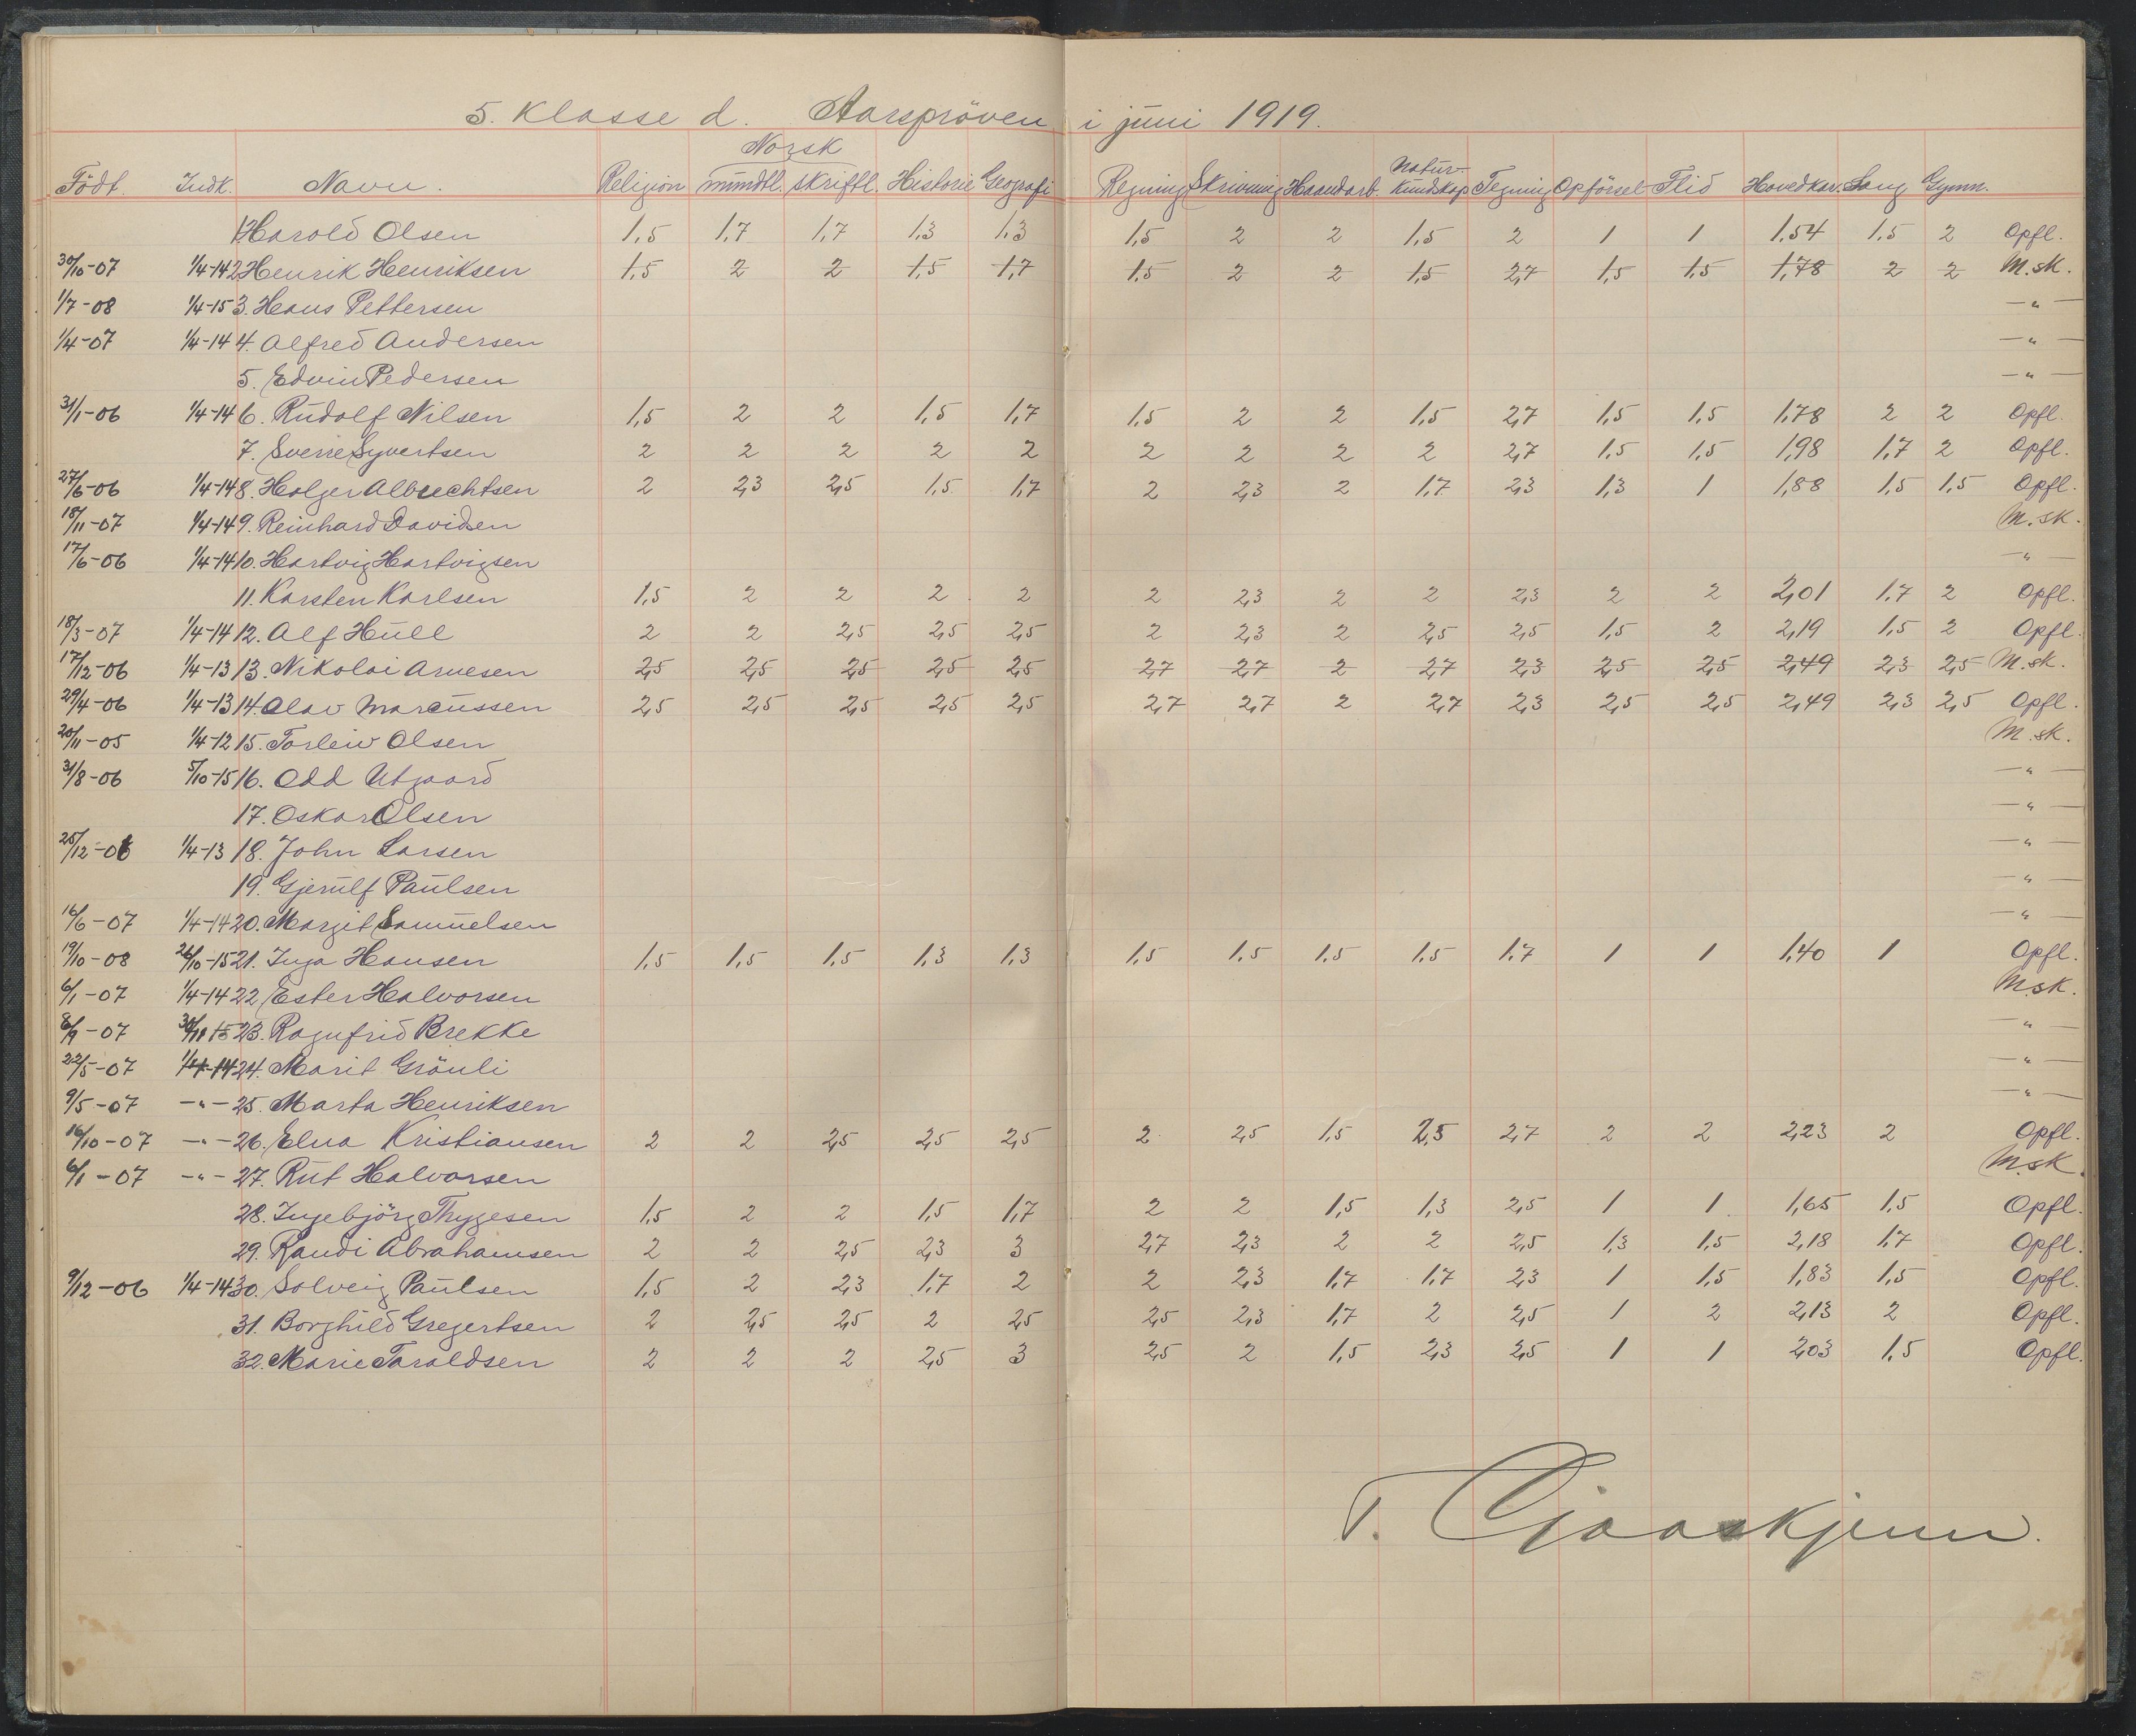 5. Klasse d. Aarspröven i juni 1919.
Norsk
Natur-
Födt. Indk. Navn. Religion mundtl. skriftl. Historie Geografi Regning Skrivning Haandarb. kundskap Tegning Opförsel Flid Hovedkar. Sang Gymn.
1 Harald Olsen 1,5 1,7 1,7 1,3 1,3 1,5 2 2 1,5 2 1 1 1,54 1,5 2 Opfl.
30/10-07 1/4-14 2 Henrik Henriksen 1,5 2 2 1,5 1,7 1,5 2 2 1,5 2,7 1,5 1,5 1,78 2 2 M.sk.
1/7-08 1/4-15 3. Hans Pettersen —"—
1/4-07 1/4-14 4. Alfred Andersen —"—
5. Edvin Pedersen —"—
31/1-06 1/4-14 6. Rudolf Nilsen 1,5 2 2 1,5 1,7 1,5 2 2 1,5 2,7 1,5 1,5 1,78 2 2 Opfl.
7. Sverre Syvertsen 2 2 2 2 2 2 2 2 2 2,7 1,5 1,5 1,98 1,7 2 Opfl.
27/6-06 1/4-14 8. Holger Albrechtsen 2 2,3 2,5 1,5 1,7 2 2,3 2 1,7 2,3 1,3 1 1,88 1,5 1,5 Opfl.
18/11-07 1/4-14 9. Reinhard Davidsen M.sk.
17/6-06 1/4-14 10. Hartvig Hartvigsen —"—
11. Karsten Karlsen 1,5 2 2 2 2 2 2,3 2 2 2,3 2 2 2,01 1,7 2 Opfl.
18/3-07 1/4-14 12. Alf Hull 2 2 2,5 2,5 2,5 2 2,3 2 2,5 2,5 1,5 2 2,19 1,5 2 Opfl.
17/12-06 1/4-13 13. Nikolai Arnesen 2,5 2,5 2,5 2,5 2,5 2,7 2,7 2 2,7 2,3 2,5 2,5 2,49 2,3 2,5 M.sk.
29/4-06 1/4-13 14. Olav Marcussen 2,5 2,5 2,5 2,5 2,5 2,7 2,7 2 2,7 2,3 2,5 2,5 2,49 2,3 2,5 Opfl.
20/11-05 1/4-12 15. Torleiv Olsen M.sk.
31/8-06 5/10-15 16. Odd Utgaard —"—
17. Oskar Olsen —"—
25/12-06 1/4-13 18. John Larsen —"—
19. Gjerulf Paulsen —"—
16/6-07 1/4-14 20. Margit Samuelsen —"—
19/10-08 26/10-15 21. Inga Hansen 1,5 1,5 1,5 1,3 1,3 1,5 1,5 1,5 1,5 1,7 1 1 1,40 1 Opfl.
6/1-07 1/4-14 22 Ester Halvorsen M.sk.
8/9-07 15 23. Ragnfrid Brekke —"—
22/5-07 1/4-14 24. Marit Grönli —"—
9/5-07 -"- 25. Marta Henriksen —"—
16/10-07 -"- 26. Elna Kristiansen 2 2 2,5 2,5 2,5 2 2,5 1,5 2,5 2,7 2 2 2,23 2 Opfl.
6/1-07 -"- 27. Rut Halvorsen M.sk.
28. Ingebjörg Thygesen 1,5 2 2 1,5 1,7 2 2 1,5 1,3 2,5 1 1 1,65 1,5 Opfl.
29. Randi Abrahamsen 2 2 2,5 2,3 3 2,7 2,3 2 2 2,5 1,3 1,5 2,18 1,7 Opfl.
9/12-06 1/4-14 30. Solveig Paulsen 1,5 2 2,3 1,7 2 2 2,3 1,7 1,7 2,3 1 1,5 1,83 1,5 Opfl.
31. Borghild Gregertsen 2 2,5 2,5 2 2,5 2,5 2,3 1,7 2 2,5 1 2 2,13 2 Opfl.
32. Marie Taraldsen 2 2 2 2,5 3 2,5 2 1,5 2,3 2,5 1 1 2,03 1,5 Opfl.
T. Gjaaskjenn.